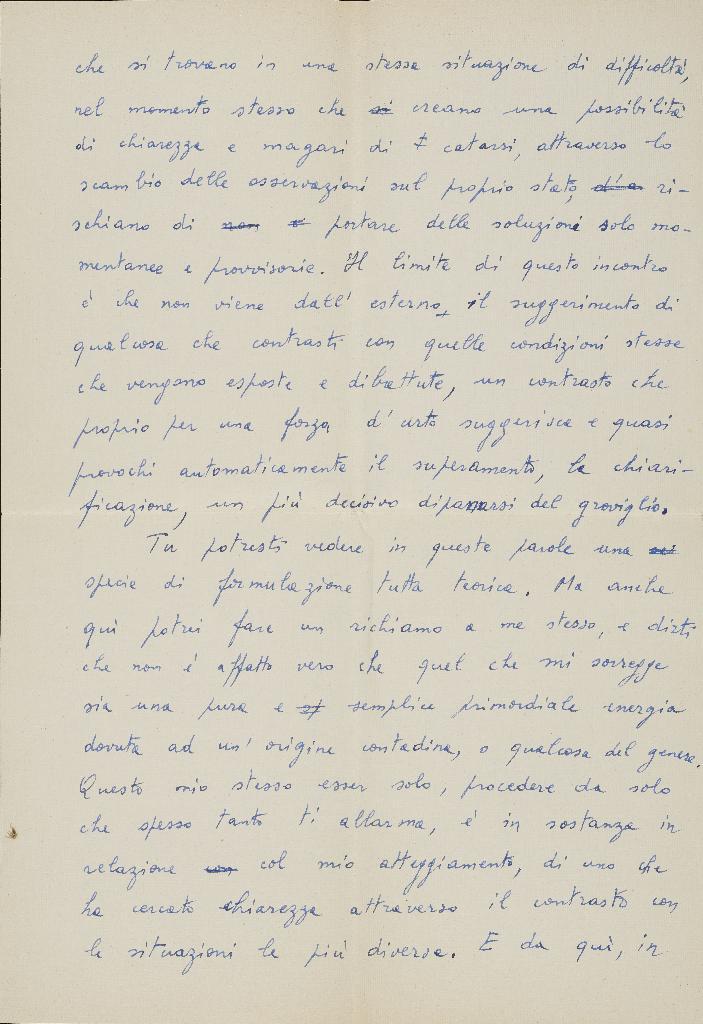 che si trovano in una stessa situazione di difficoltà,
nel momento stesso che si creano una possibilità
di chiarezza e magari di catarsi, attraverso lo
scambio delle osservazioni sul proprio stato, d'a ri-
schiano di non e portare delle soluzioni solo mo-
mentanee e provvisorie. Il limite di questo incontro
è che non viene dall'esterno il suggerimento di
qualcosa che contrasti con quelle condizioni stesse
che vengono esposte e dibattute, un contrasto che
proprio per una forza d'urto suggerisca e quasi
provochi automaticamente il superamento, la chiari-
ficazione, un più decisivo dipanarsi del groviglio.
Tu potresti vedere in queste parole una
specie di formulazione tutta teorica. Ma anche
qui potrei fare un richiamo a me stesso, e dirti
che non è affatto vero che quel che mi sorregge
sia una pura e semplice primordiale energia
dovuta ad un'origine contadina, o qualcosa del genere.
Questo mio stesso esser solo, procedere da solo
che spesso tanto ti allarma, è in sostanza in
relazione con col mio atteggiamento, di uno che
ha cercato chiarezza attraverso il contrasto con
le situazioni le più diverse. E da qui, in